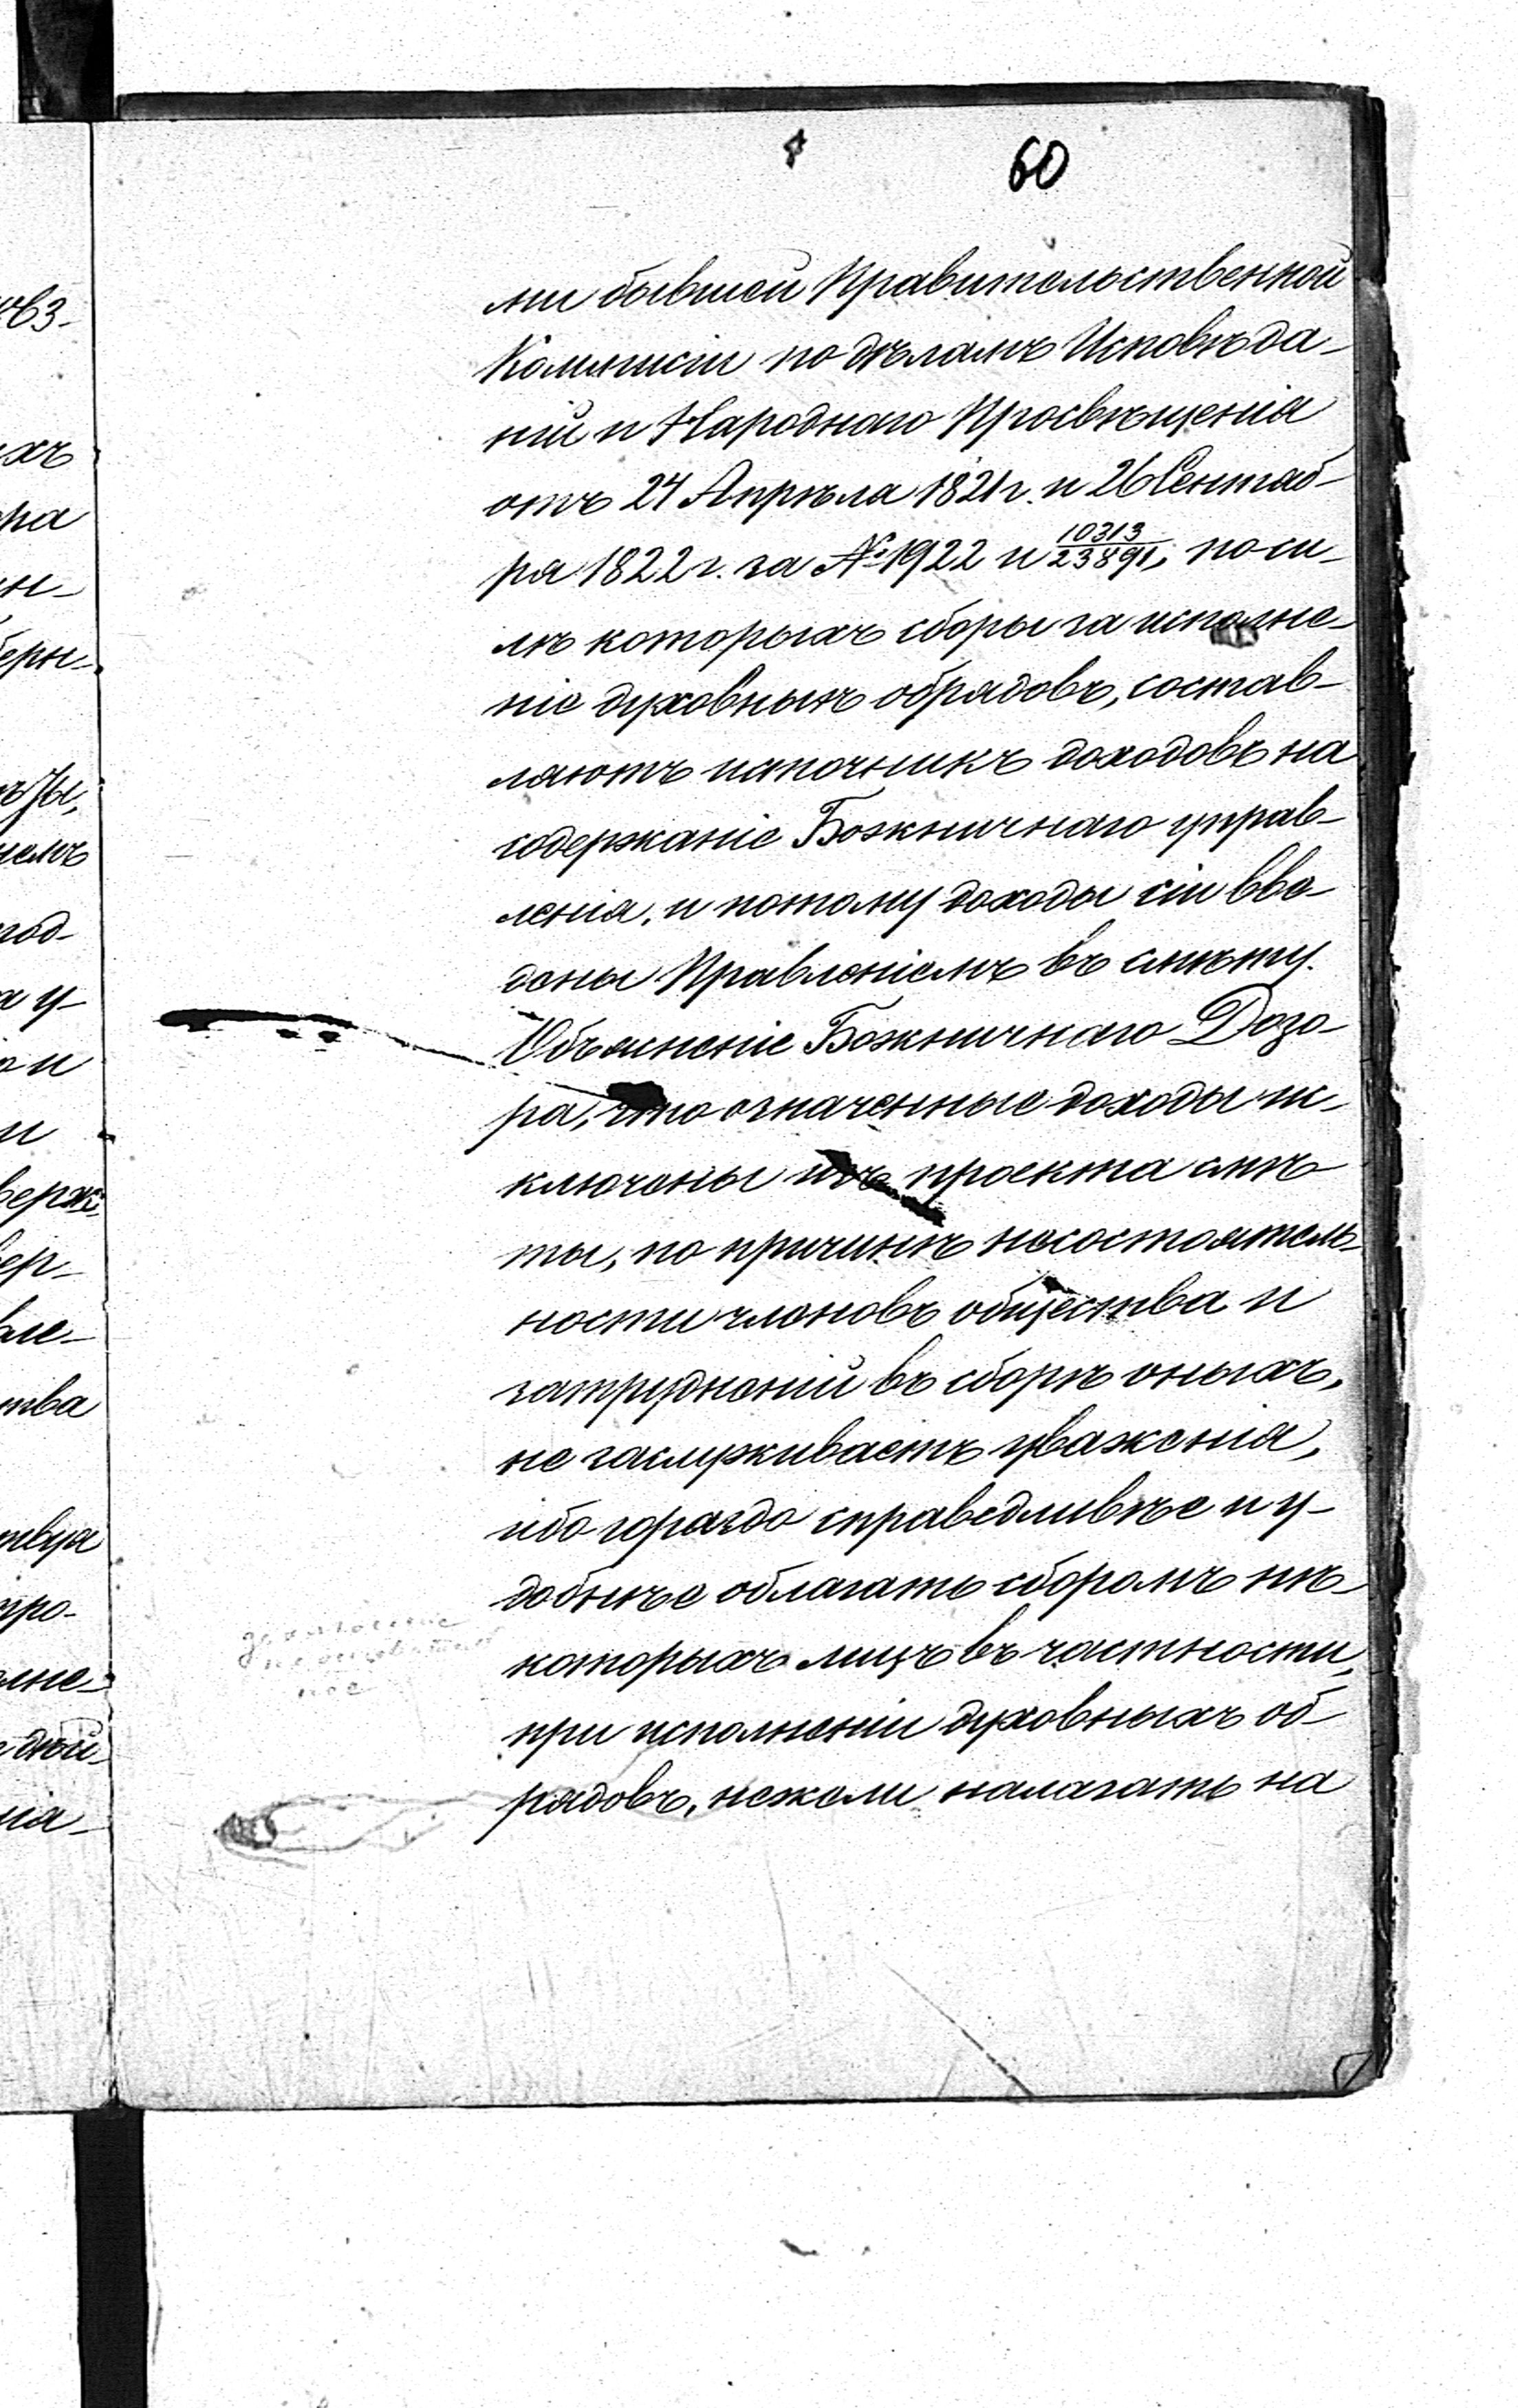 60
ми бывшей Правительственной
Коммисіи по дѣламъ Исповѣда-
ній и Народнаго Просвѣщенія
отъ 24 Апрѣля 1821 г. и 26 Сентяб-
ря 1822 г. за № 1922 и 10313/23891, по си-
лѣ которыхъ сборы за исполне-
ніе духовныхъ обрядовъ, состав-
ляютъ источникъ доходовъ на
содержаніе Божничнаго управ-
ленія, и потому доходы сіи вве-
дены Правленіемъ въ смѣту.
Объясненіе Божничнаго Дозо-
ра, что означенные доходы ис-
ключены изъ проекта смѣ-
ты, по причинѣ несостоятель-
ности членовъ общества и
затрудненій въ сборѣ оныхъ,
не заслуживаетъ уваженія,
ибо гораздо справедливѣе и у-
добнѣе облагать сборомъ нѣ-
которыхъ лицъ въ частности,
при исполненіи духовныхъ об-
рядовъ, нежели налагать на